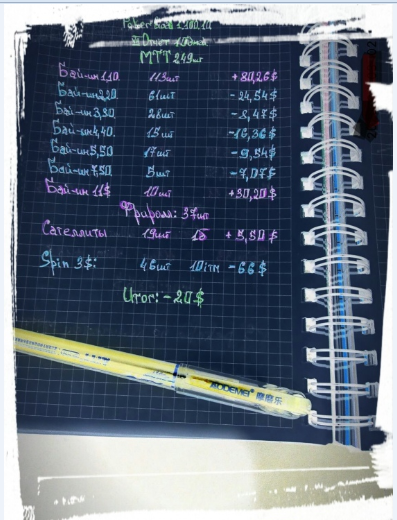 МТТ 249шт
Бай-ин 1,10 113шт +80,26$
Бай-ин 2,20 61шт -24,54$
Бай-ин 3,30 28шт -8,47$
Бай-ин 4,40 15шт -16,36$
Бай-ин 5,50 17шт -9,54$
Бай-ин 7,50 5шт -7,07$
Бай-ин 11$ 10шт +30,20$
Фрироллы: 37шт
Сателлиты 19шт + 5,50$
Spin 3$: 46шт 10itm -66$
Итог: -20$
AODEMEI